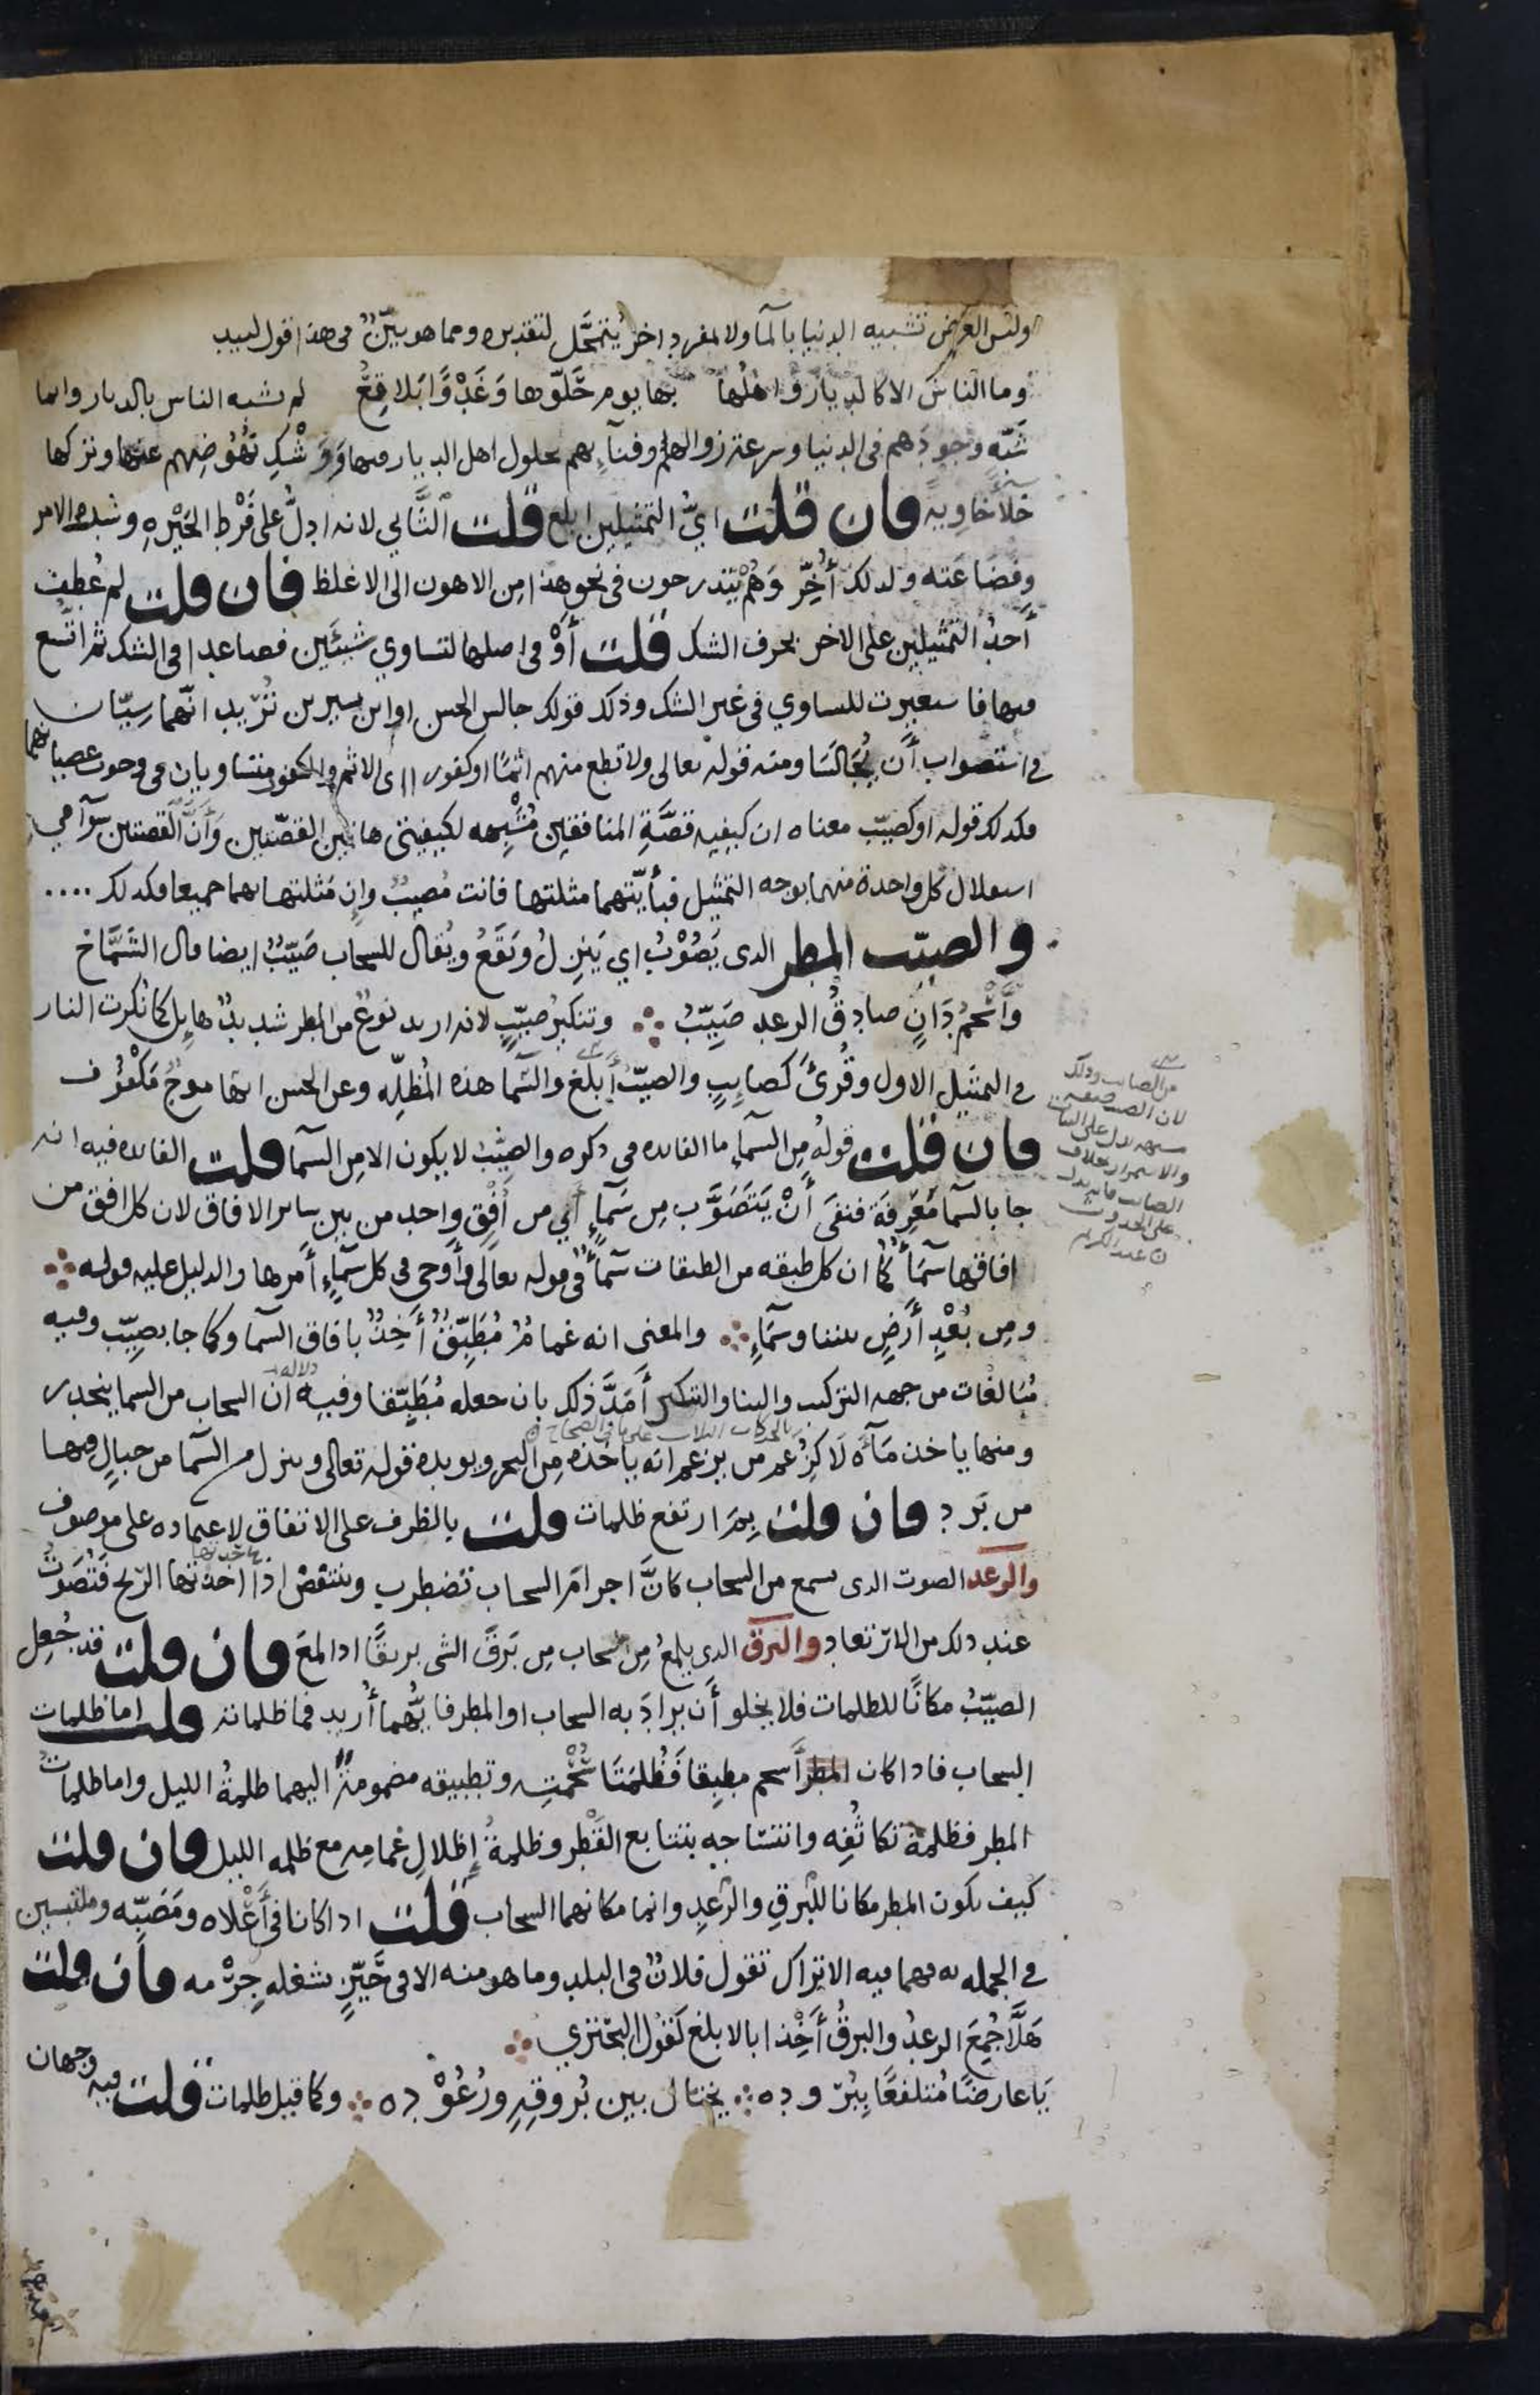 وليس الغرض تشبيه الدنيا بالما ولا لمفرد اخر يُتَمحَّل لتقديره ومما هو بيِّنٌ في هذا قول لبيد
وما الناس الا كالديار واهلها بها يوم حَلّوها وَغَدْوًا بَلاقِعُ لم يشبه الناس بالديار وانما
شَبّه وجودَهم في الدنيا وسرعة زوالهم وفنآءِهم بحلول اهل الديار فيها وَوَشْكِ نُهُوضِهم عنها وتركها
خَلاءً خاويةً فان قلت ايُّ التمثيلين ابلغ قلت الثّاني لانه ادلُّ على فَرْط الحَيْرةِ وشدة الامر
وفضاعته ولذلك أُخِّر وَهُمْ يتدرجون في نحو هذا من الاهون الى الاغلظ فان قلت لم عُطِفَ
أحدُ التمثيلين على الاخر بحرف الشك قلت أوْ في اصلها لتساوي شيئَين فصاعدا في الشك ثم اتسع
فيها فاستعيرت للتساوي في غير الشك وذلك قولك جالس الحسن او ابن سيرين تُرِيد انّهما سِيّان
في استصواب أن يُجَالَسَا ومنه قوله تعالى ولا تطع منهم اثمًا او كفورا اى الاثم والكفور متساويان في وجوب عصيانهما
فكذلك قوله او كصيّب معناه ان كيفية قصَّةِ المنافقين مُشْبِهه لكيفيتي هاتين القصّتين وَأنَّ القصتين سوآ في
استقلال كل واحدة منهما بوجه التمثيل فبأيّتهما مثلتها فانت مُصيبٌ وان مَثلتها بهما جميعا فكذلك ....
والصيّب المطر الذى يَصُوْبُ اي يَنزِلُ وَيَقَعُ ويُقال للسحاب صَيّبٌ ايضا قال الشَمَّاخ
وَأَسْحَمُ دَانٍ صادِقُ الرعد صَيِّبُ وتنكيرُ صيّبٍ لانه اريد نوعٌ من المطر شديدٌ هايل كما نُكرت النار
في التمثيل الاول وقُرِئَ كَصايِبٍ والصيّبُ أبلغ والسّما هذه المُظِلّه وعن الحسن انها موجٌ مَكْفُوْف
فان قلت قولهُ مِن السمآءِ ما الفايده في ذكره والصيّبُ لا يكون الا من السمآ قلت الفايده فيه انه
جا بالسمآ مَعْرِفَة فنفَى أنْ يَتَصَوَّب مِن سَمآءٍ أي من أُفُقٍ واحد من بين ساير الافاق لان كل افق من
افاقها سَمآءٌ كما ان كل طبقه من الطبقات سَمآءٌ في قوله تعالى وأوحى في كل سَمآءٍ أمرها والدليل عليه قوله
ومِن بُعْدِ أرْضٍ بيننا وسَمَآءِ والمعنى انه غمامٌ مُطَبِّقٌ أَخِذٌ بافاق السما وكما جا بصيِّب وفيه
مُبَالغَات من جهه التركيب والبنا والتنكير أمَدَّ ذلك بان جعله مُطَبِّقا وفيه دلاله ان السحاب من السما ينحدر
بالحركات الثلاث على ما في الصحاح
ومنها ياخذ مَآءَه لَا كزعم من يزعم انه ياخذه من البحر ويويده قوله تعالى وينزل من السّما من جبالٍ فيها
من بَرَدٍ فان قلت بِمَ ارتفع ظلمات قلت بالظرف على الاتفاق لاعتماده على موصوف
والرعد الصوت الذى يسمع من السحاب كانَّ اجرام السحاب تضطرب وتنتقض اذا اخذتها الرّيح فَتُصَوّتُ
عند ذلك من الارتعاد والبرق الذي يلمعُ مِن السحاب مِن بَرقَ الشى بريقًا اذا لمعَ فان قلت قد جُعِل
الصيّبُ مكانًا للظلمات فلا يخلو أن يرادَ به السحاب او المطر فايُّهما أُريد فما ظلماته قلت اما ظلمات
السحاب فاذا كان اسحم مطبقا فَظُلمتَا سُحْمتِه وتطبيقه مضمومةً اليهما ظلمةُ الليل واما ظلمات
المطر فظلمة تكاثُفِه وانتساجِهِ بتتابع القَطْر وظلمةُ إظلالِ غمامِه مع ظلمه الليل فان قلت
كيف يكون المطر مكانا للبَرقِ والرّعدِ وانما مكانهما السحاب قلت اذا كانا في أعْلاه ومَصَبِّه وملتبسين
في الجمله به فهما فيه الا تراك تقول فلانٌ في البلد وما هو منه الا في حَيّزٍ يشغله جِرْمه فان قلت
هَلَّا جُمِعَ الرعدُ والبرقُ أَخْذا بالابلغ كقول البحتري
يَا عارضًا مُتلفعًا بِبُرُودِه يختال بين بُروقِه ورُعُوْدِه وكما قيل ظلمات قلت فيه وجهان
من الصايب وذلك
لان الصيب صفة
مشبهه تدل على الثبات
والاستمرار بخلاف
الصايب فانه يدل
على الحدوث
عبد الكريم